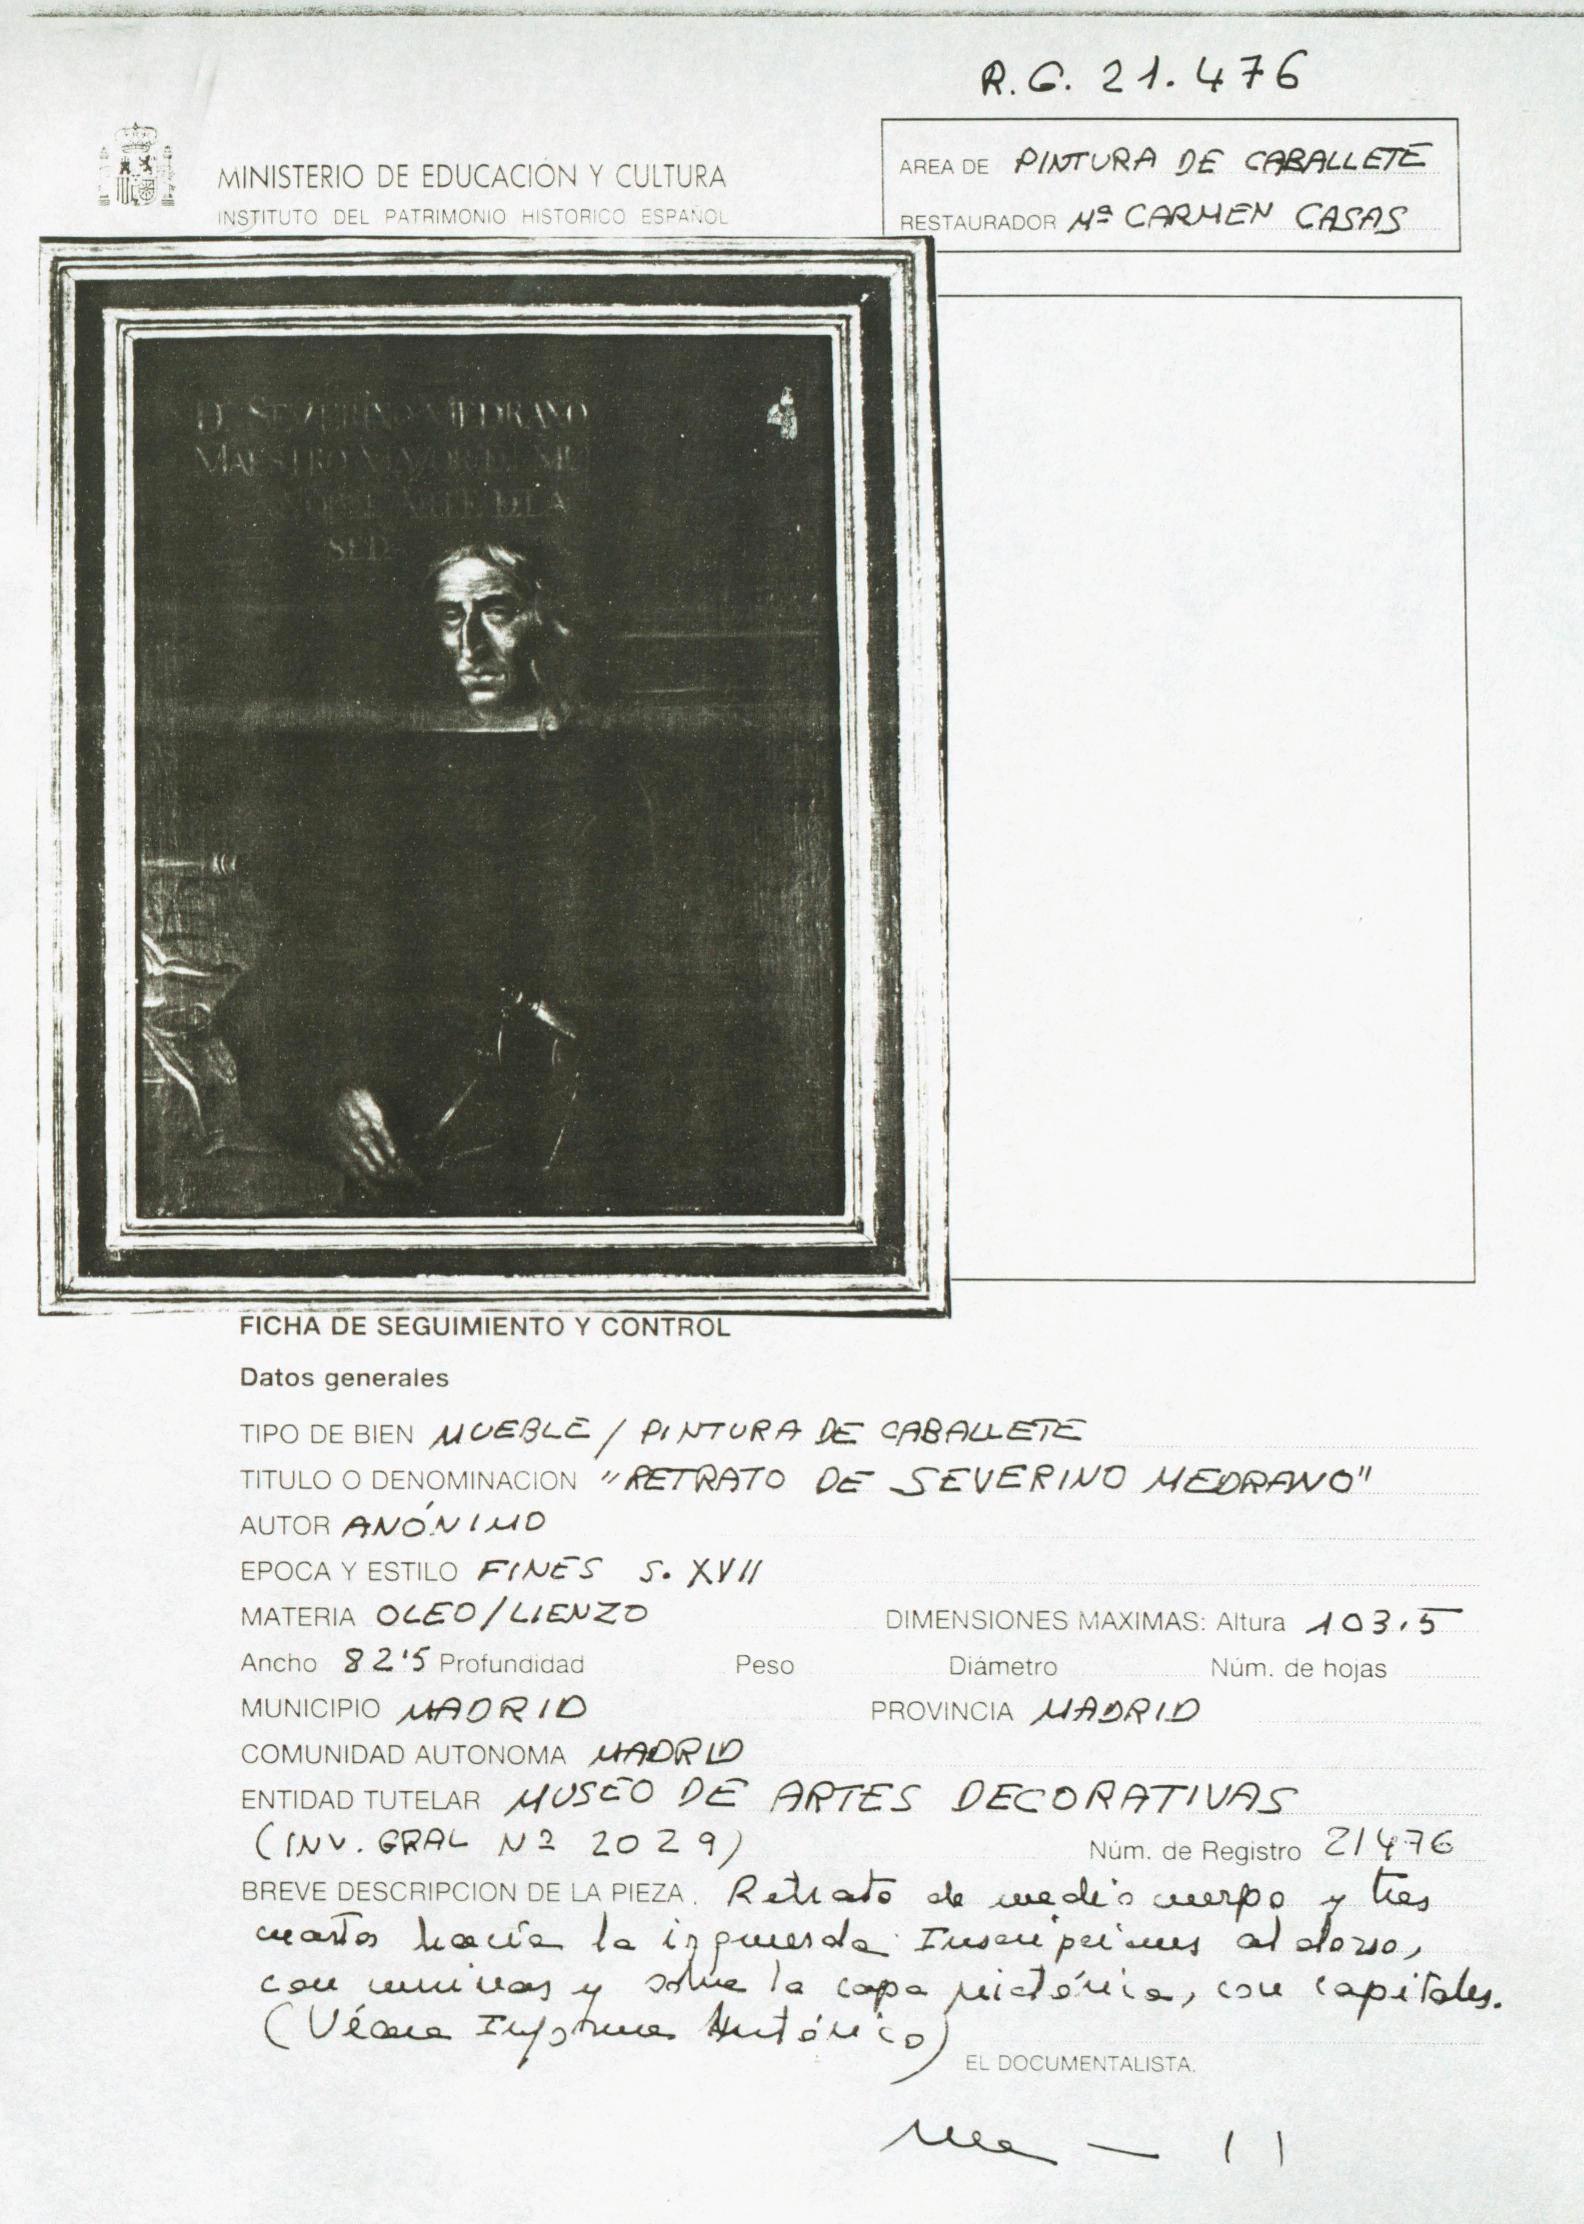 R.G. 21.476
MINISTERIO DE EDUCACIÓN Y CULTURA
INSTITUTO DEL PATRIMONIO HISTORICO ESPAÑOL
AREA DE PINTURA DE CABALLETE
RESTAURADOR Mª CARMEN CASAS
D. SEVERINO MEDRANO
MAESTRO MAYOR DE
NOBLE ARTE DLA
SED
FICHA DE SEGUIMIENTO Y CONTROL
Datos generales
TIPO DE BIEN MUEBLE / PINTURA DE CABALLETE
TITULO O DENOMINACION "RETRATO DE SEVERINO MEDRANO"
AUTOR ANÓNIMO
EPOCA Y ESTILO FINES S. XVII
MATERIA OLEO/LIENZO DIMENSIONES MAXIMAS: Altura 103.5
Ancho 82'5 Profundidad Peso Diámetro Núm. de hojas
MUNICIPIO MADRID PROVINCIA MADRID
COMUNIDAD AUTONOMA MADRID
ENTIDAD TUTELAR MUSEO DE ARTES DECORATIVAS
(INV. GRAL Nº 2029) Núm. de Registro 21476
BREVE DESCRIPCION DE LA PIEZA. Retrato de medio cuerpo y tres
cuartos hacia la izquierda. Inscripciones al dorso,
con y sobre la capa pictórica, con capitales.
(Véase Informe Histórico)
EL DOCUMENTALISTA.